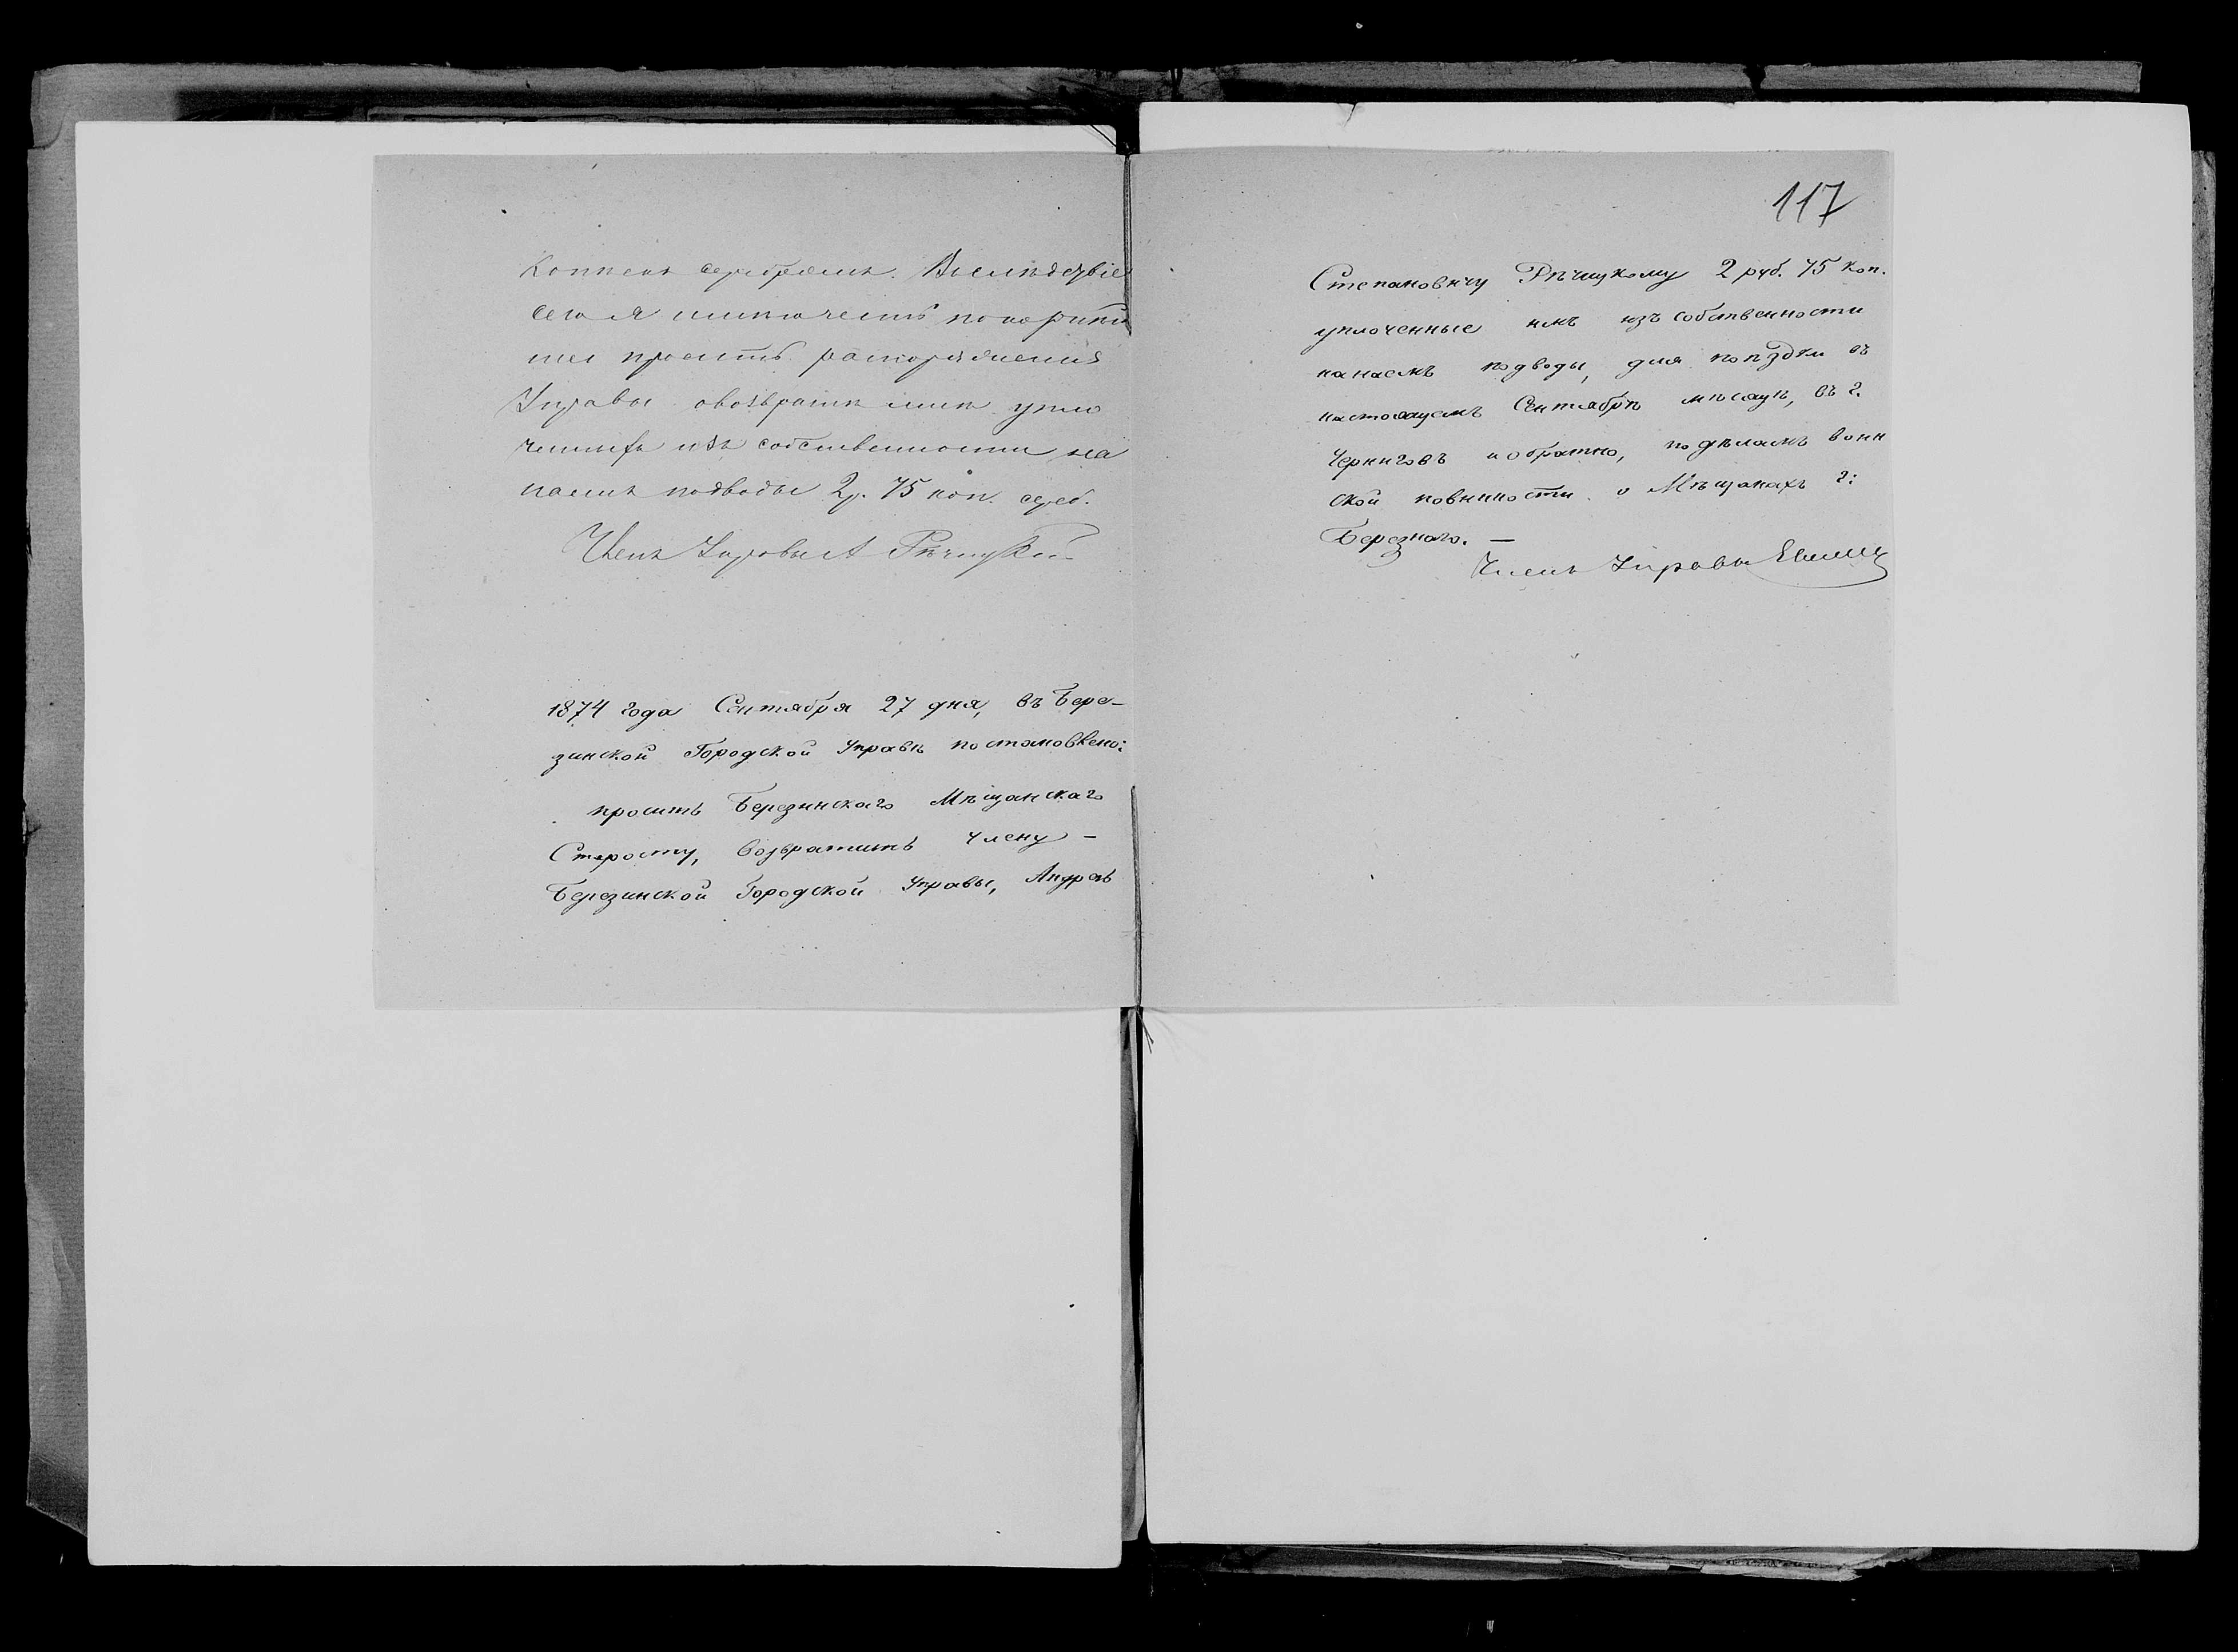 Копѣекъ серебромъ. Вслѣдствіе
сего я имѣю честь покорнѣй
ше просить распоряженія
Управы овозвратѣ мнѣ упло
ченныхъ изъ собственности на
наемъ подводы 2 р. 75 коп. сереб.
Членъ Управы А Рѣчицкій
1874 года Сентября 27 дня, въ Бере-
зинской Городской Управѣ постановлено:
просить Березинскаго Мѣщанскаго
Старосту, возвратить Члену -
Березинской Городской Управы, Андрею
117
Степановичу Рѣчицкому 2 руб. 75 коп.
уплоченные имъ изъ собственности
на наемъ подводы, для поѣздки въ
настоящемъ Сентябрѣ мѣсяцѣ, въ г.
Черниговъ и обратно, по дѣламъ воин
ской повинности о Мѣщанахъ г:
Березнаго. —
Членъ Управы